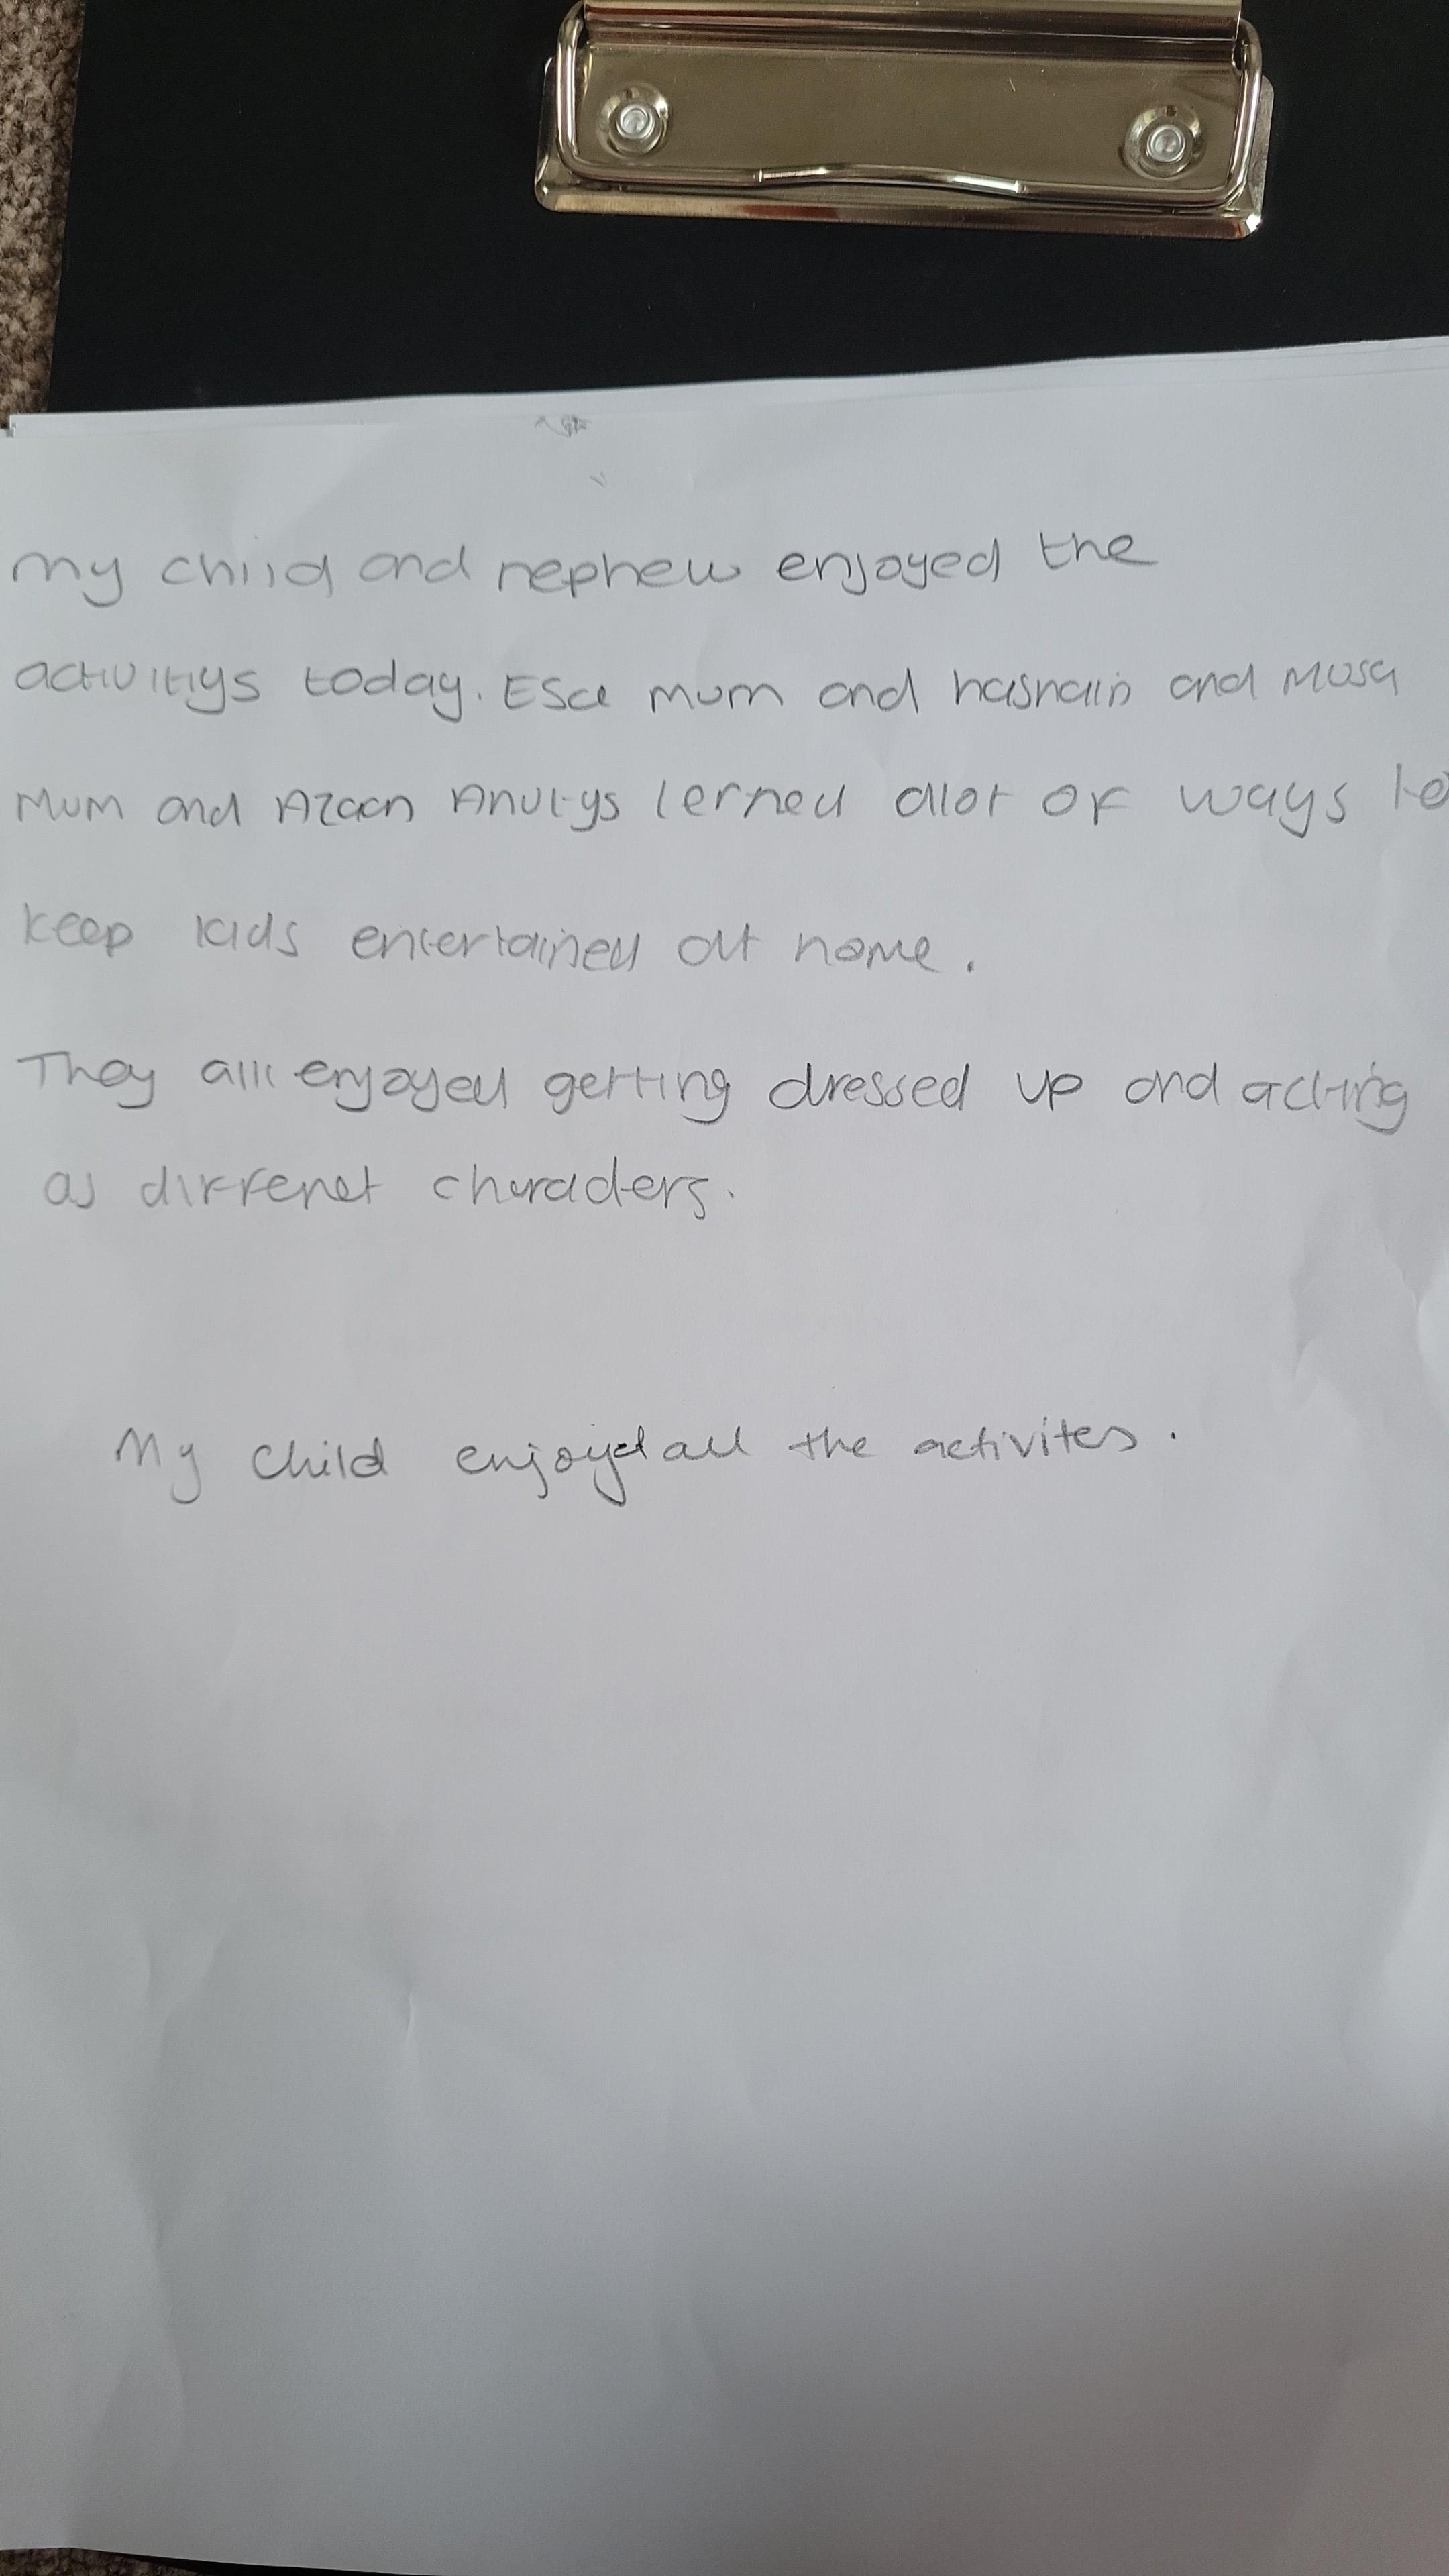 my child and nephew enjoyed the
activitiys today. Esa mum and hasnain and Musa
Mum and Azaan Anutys lerned alot of ways to
keep kids entertained at home.
They all enjoyed getting dressed up and acting
as diffenet charaders.
My child enjoyed all the activites.